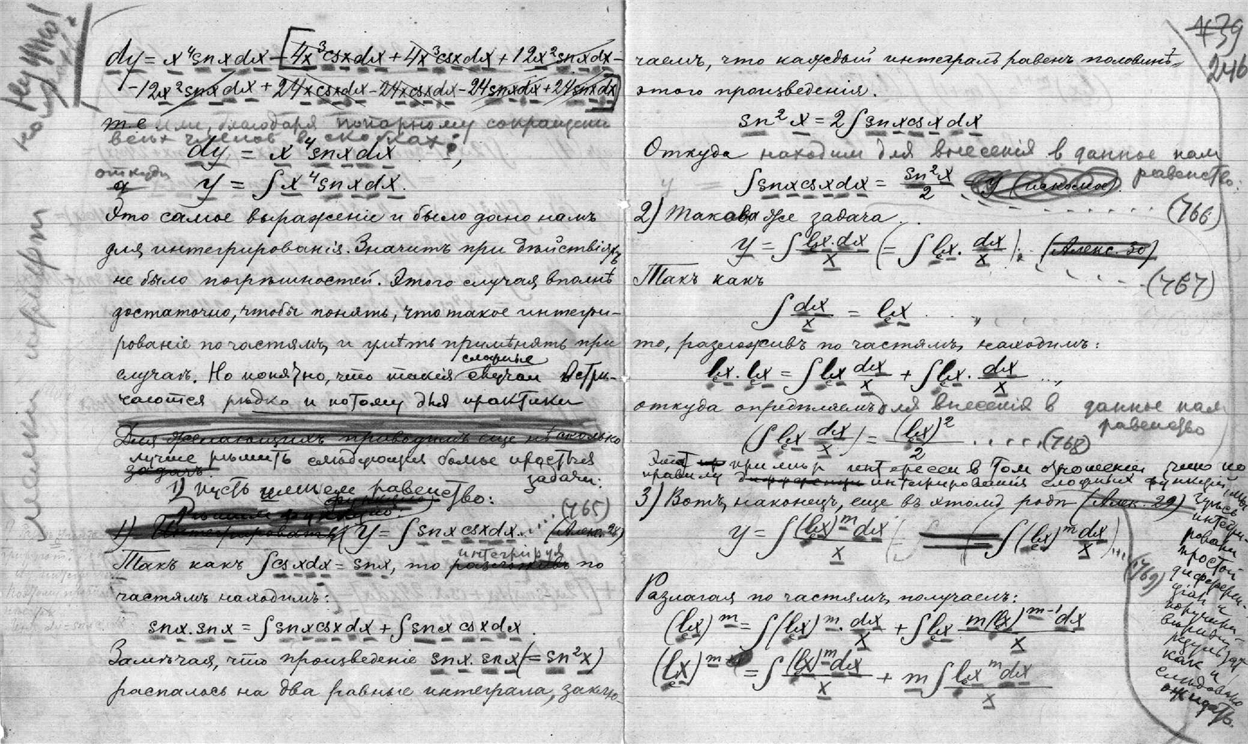 dy = x⁴snxdx - [4x³csxdx + 4x³csxdx + 12x²snxdx -
- 12x²snxdx + 24xcsxdx - 24xcsxdx - 24snxdx + 24snxdx]
т.е. или, благодаря попарному сокращению
всех членов в скобках:
dy = x⁴snxdx
откуда
y = ∫x⁴snxdx.
Это самое выраженіе и было дано намъ
для интегрированія. Значитъ при дѣйствіяхъ
не было погрѣшностей. Этого случая вполнѣ
достаточно, чтобы понять, что такое интегри-
рованіе по частямъ, и умѣть примѣнять при
случаѣ. Но понятно, что такія сложные случаи встрѣ-
чаются рѣдко и потому для практики
Для желающихъ приводимъ еще нѣсколько
лучше рѣшить слѣдующія болѣе простыя
задачи:
1) Пусть имеем равенство:
y = ∫snxcsxdx... (Алекс. 28) (765)
Такъ какъ ∫csxdx = snx, то интегрируя по
частямъ находимъ:
snx.snx = ∫snxcsxdx + ∫snxcsxdx.
Замѣчая, что произведеніе snx.snx (= sn²x)
распалось на два равные интеграла, заклю-
439
246
чаемъ, что каждый интегралъ равенъ половинѣ
этого произведенія.
sn²x = 2∫snxcsxdx
Откуда находим для внесенія в данное нам
равенство:
∫snxcsxdx = sn²x/2 (766)
2) Такова же задача
y = ∫lx.dx/x (= ∫lx. dx/x). (Алекс. 30) (767)
Такъ какъ
∫dx/x = lx ....,
то, разложивъ по частямъ, находимъ:
lx.lx = ∫lx dx/x + ∫lx. dx/x ...,
откуда опредѣляемъ для внесенія в данное нам
равенство
(∫lx dx/x) = (lx)²/2 ..... (768)
Этот пример интересен в том отношении, что по
правилу интегрирования сложных функций
3) Вотъ, наконецъ, еще въ этомъ родѣ (Алек. 29)
y = ∫(lx)ᵐdx/x = ∫(lx)ᵐdx/x ... (769)
Разлагая по частямъ, получаемъ:
(lx)ᵐ = ∫(lx)ᵐ. dx/x + ∫lx m(lx)ᵐ⁻¹dx/x
(lx)ᵐ⁺¹ = ∫(lx)ᵐdx/x + m∫lxᵐdx/x
интегри-
ровали
простой
диферен-
циал и
получили
результат,
как и
следовало
ожидать.